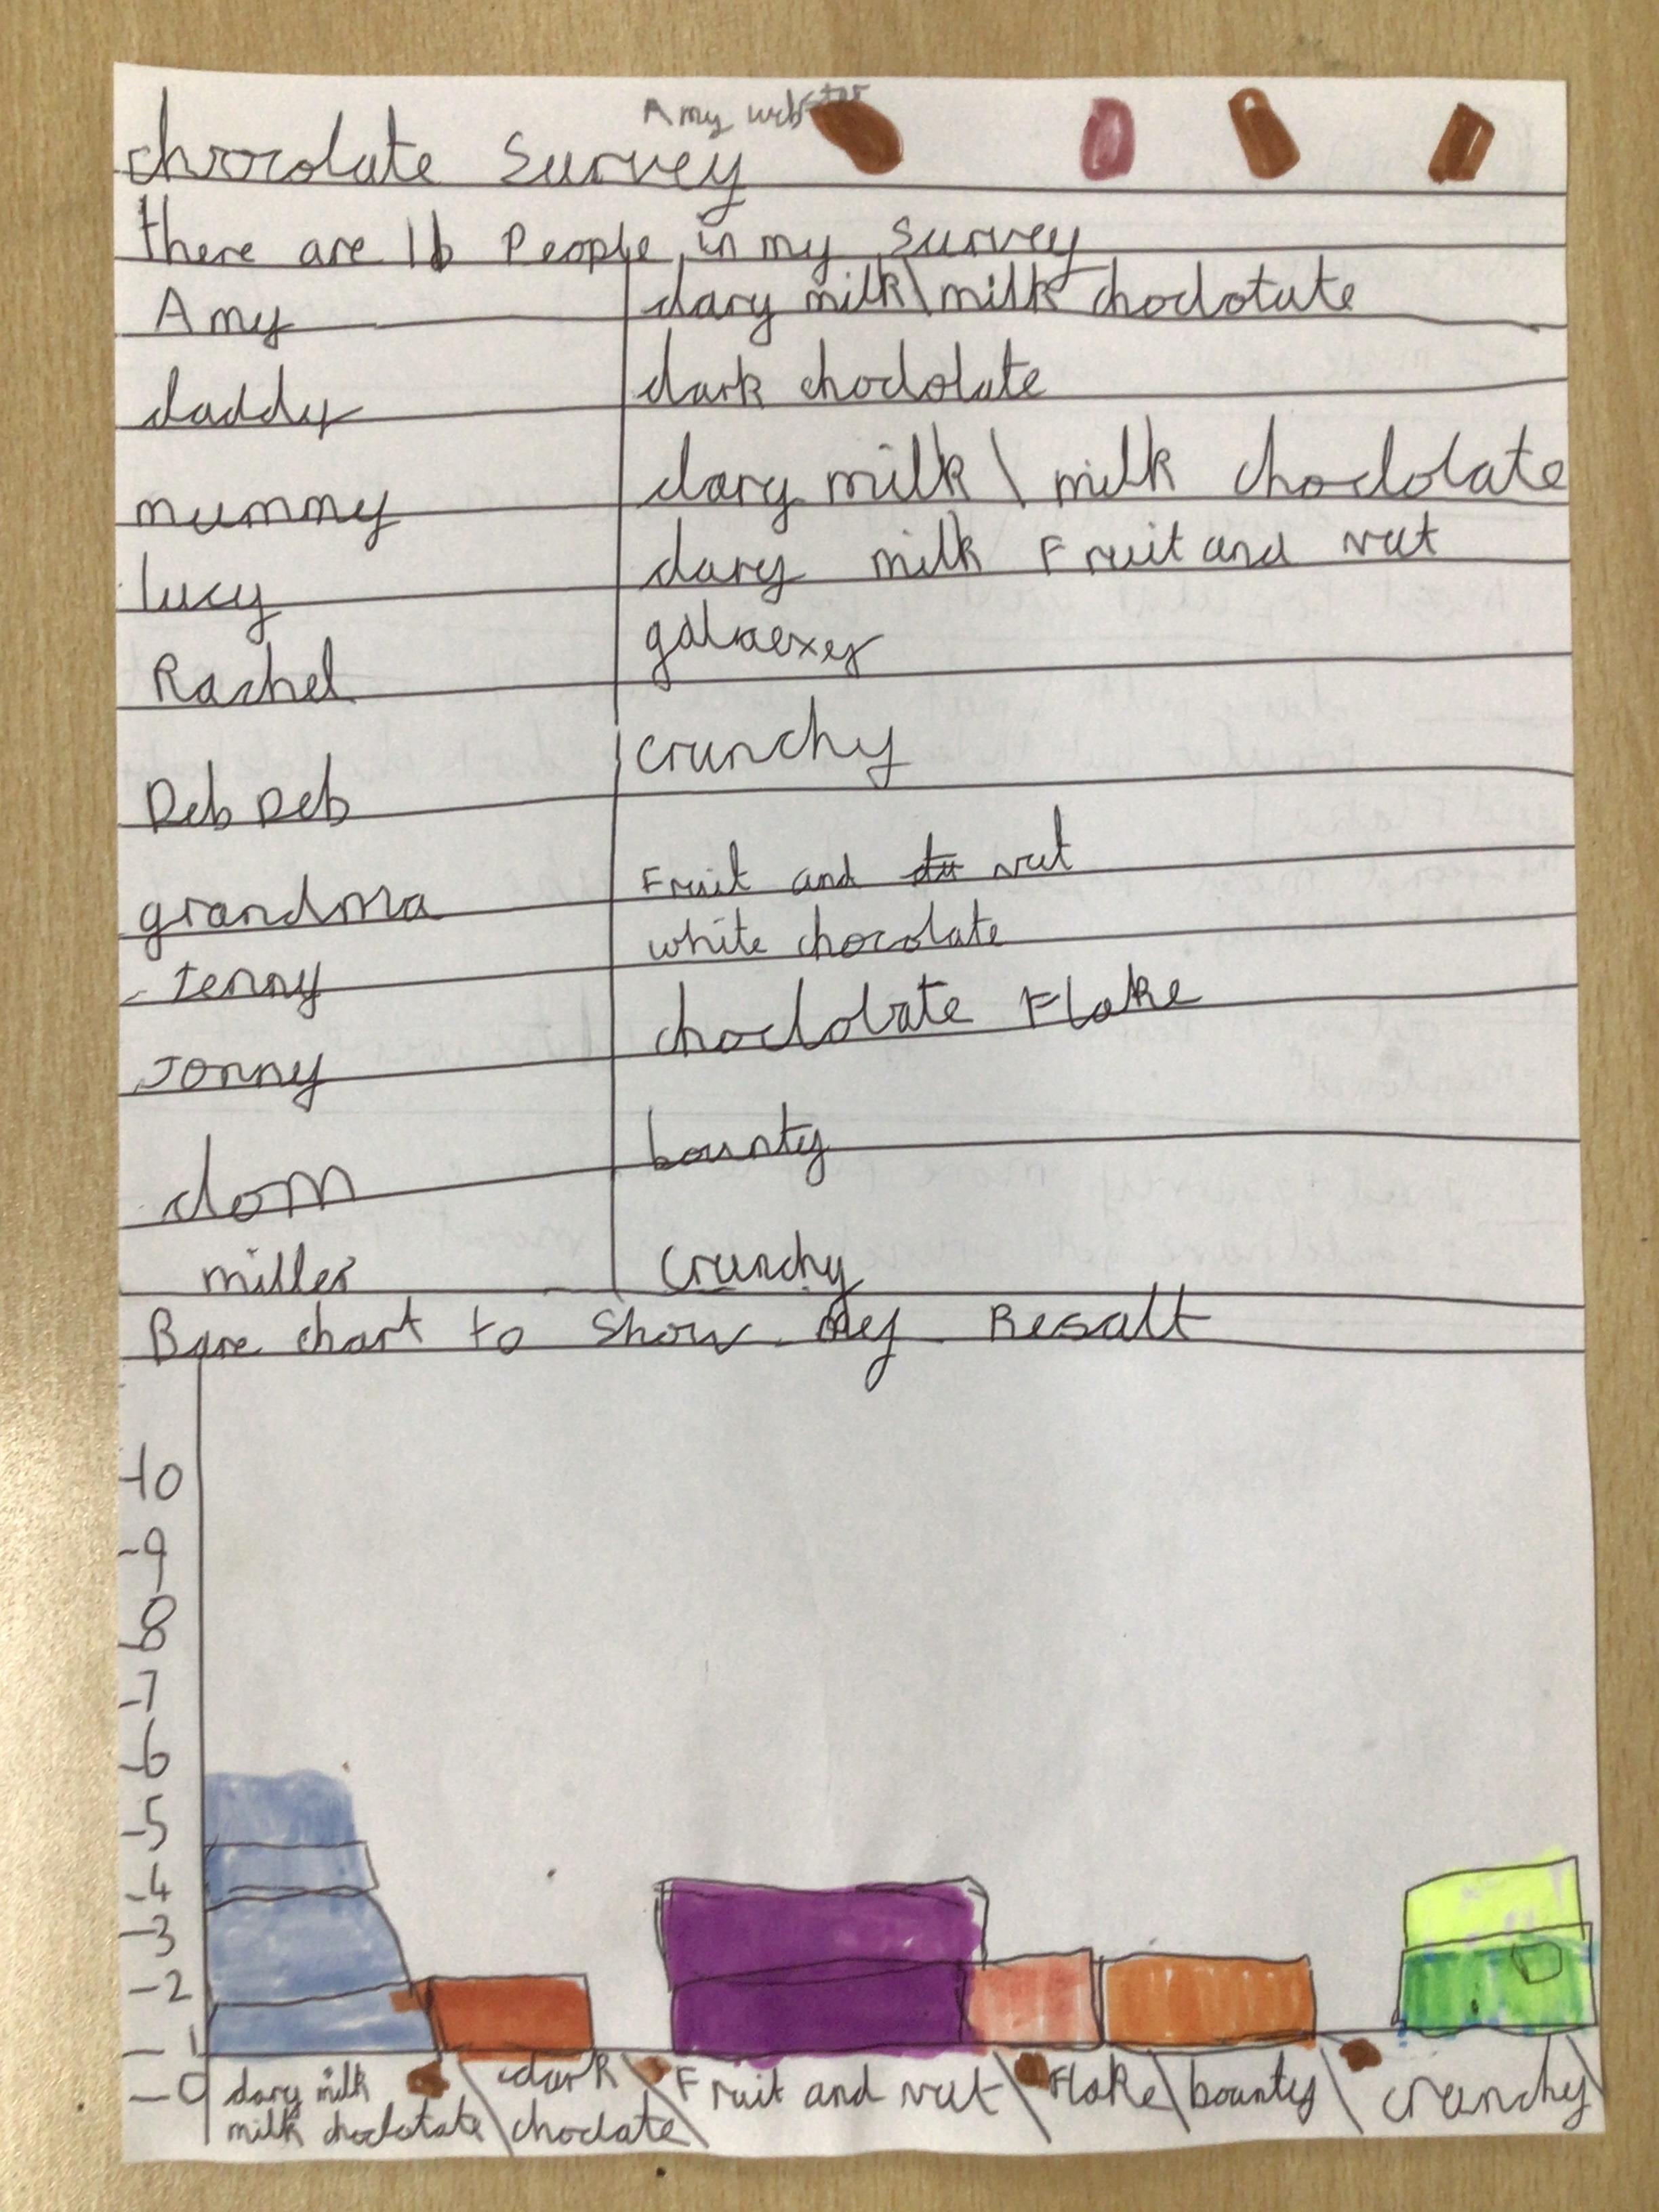 Amy webster
chrocolate survey
there are 16 People in my survey
Amy dary milk\milk choclotate
daddy dark choclolate
mummy dary milk \ milk choclolate
lucy dary milk Fruit and nut
Rachel galaexey
Deb Deb crunchy
grandma Fruit and nut
Jenny white chocolate
Jonny choclolate Flake
dom bounty
miller crunchy
Bare chart to show my Resalt
10
9
8
7
6
5
4
3
2
1
0
dary milk \ dark \ Fruit and nut \ Flake \ bounty \ crunchy \
milk choclotate \ choclate \